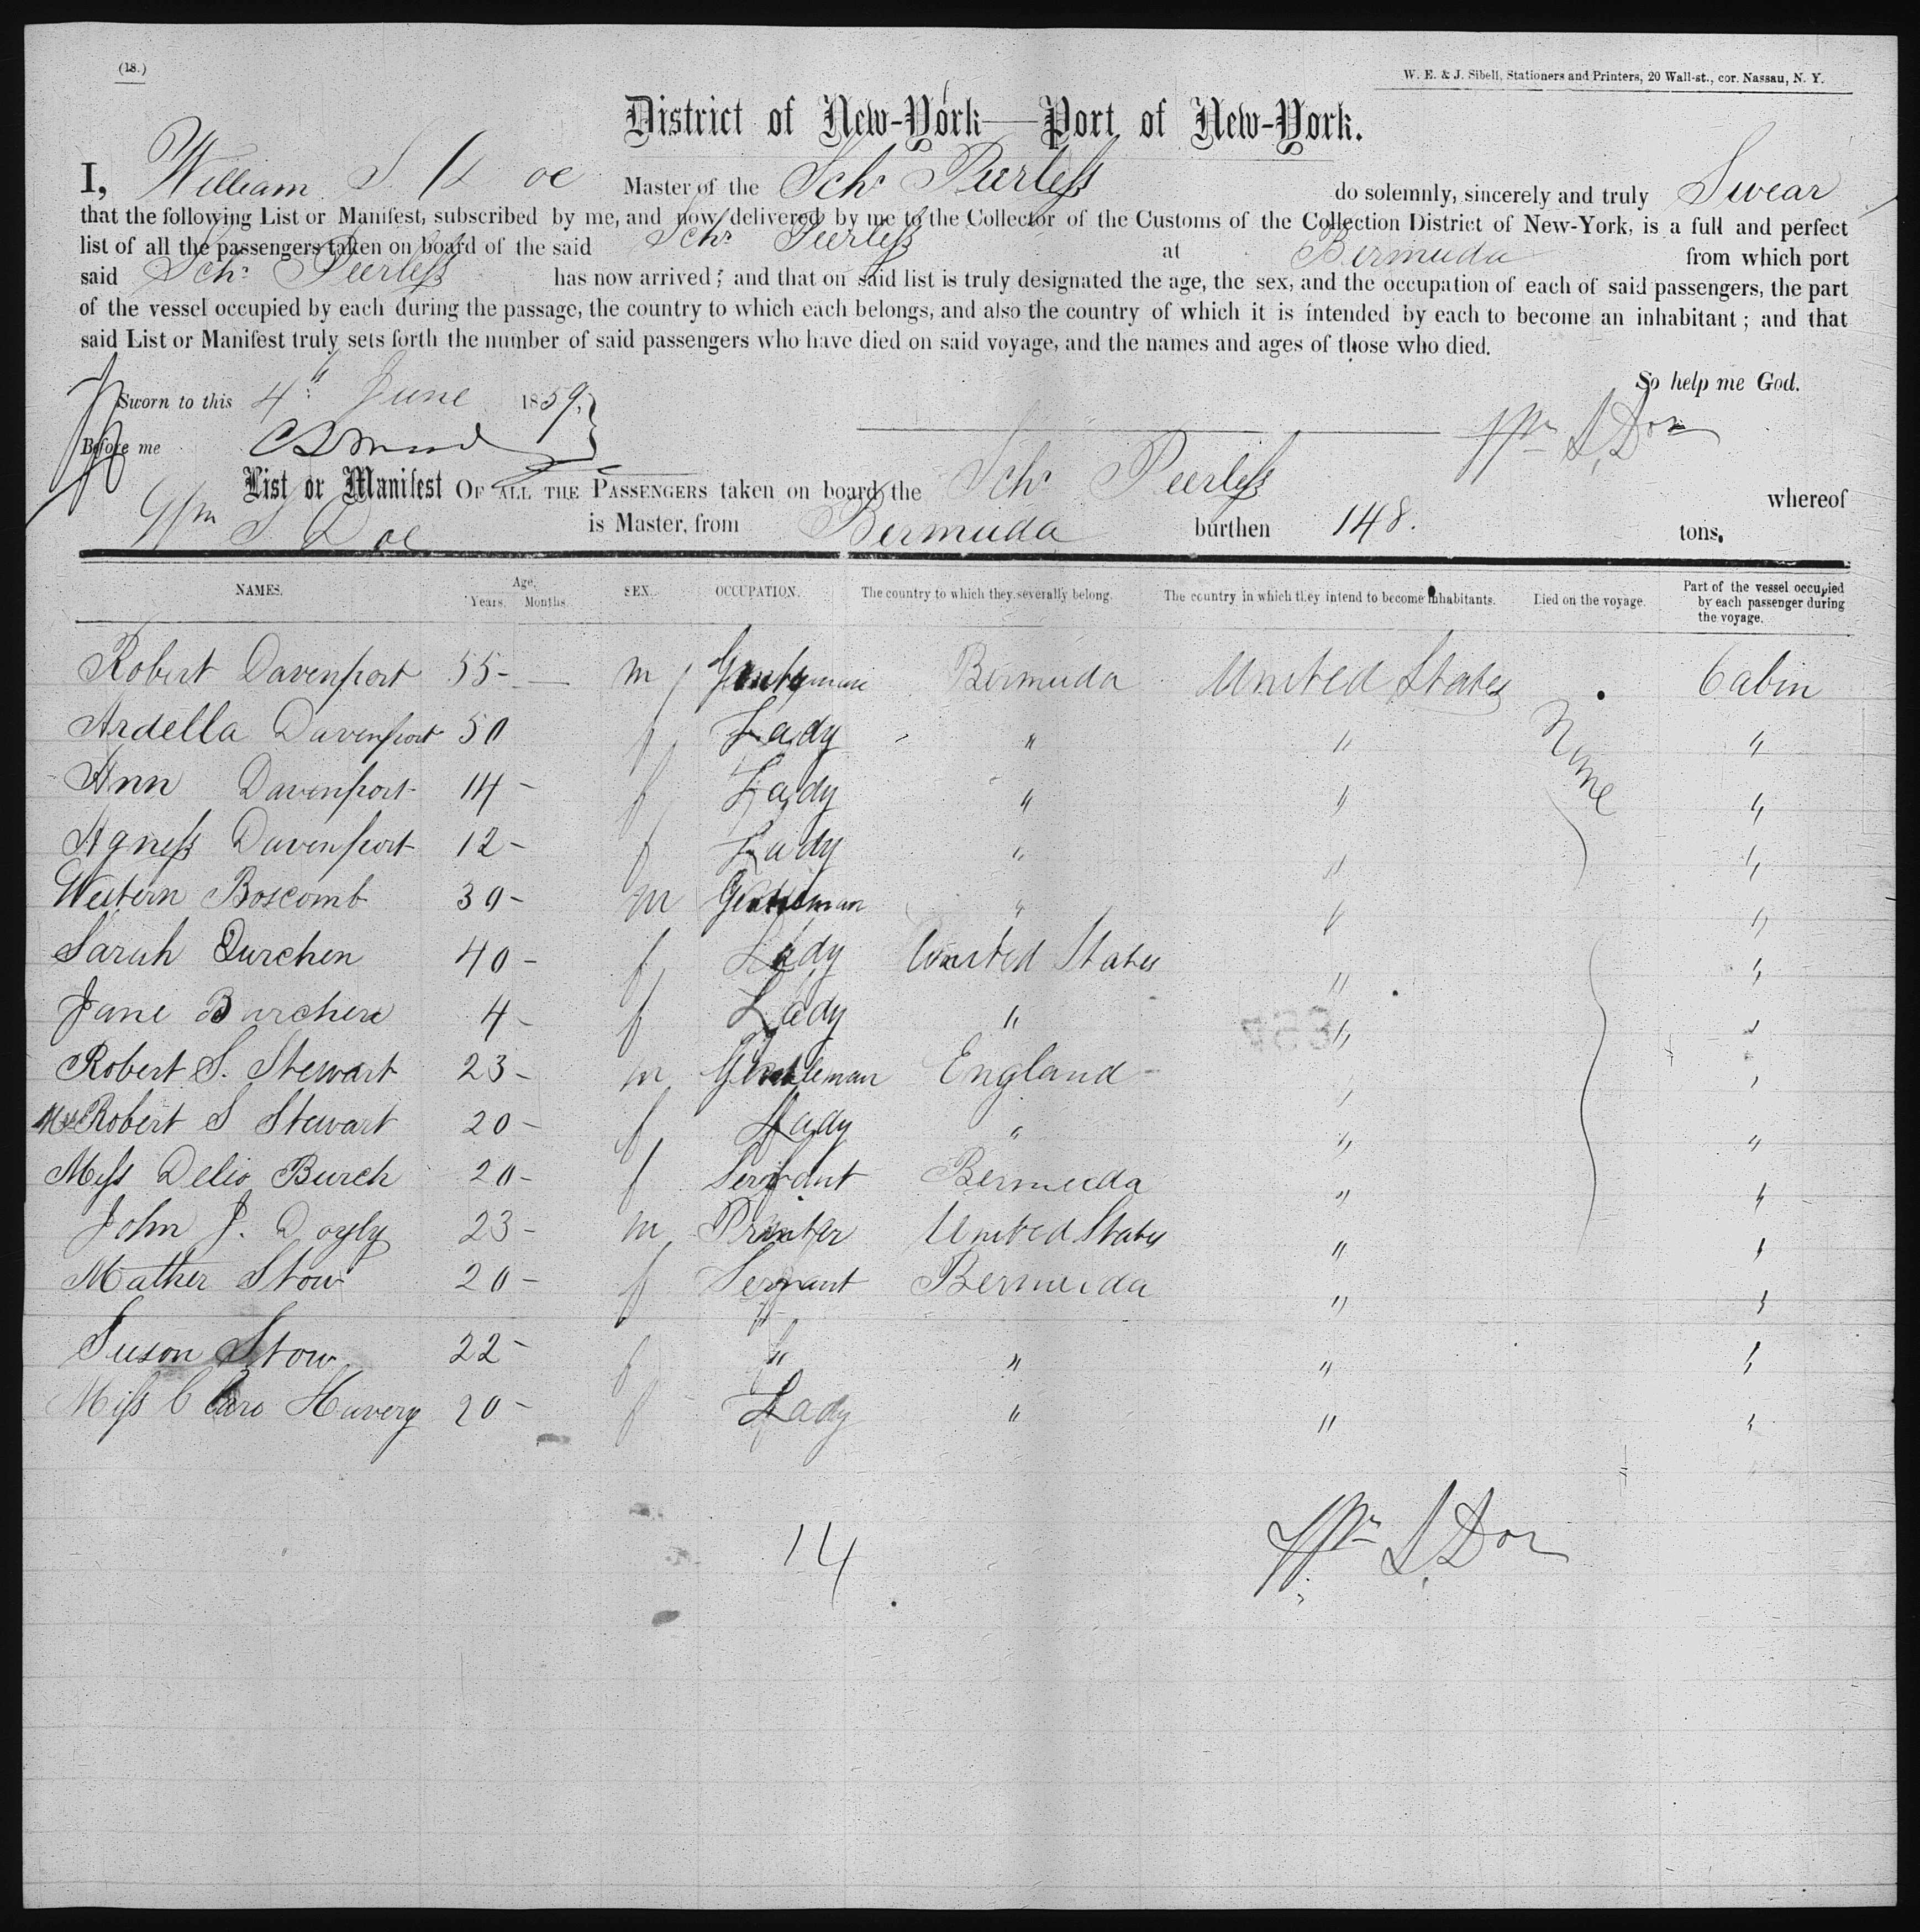 (18.)
W. E. & J. Sibell, Stationers and Printers, 20 Wall-st., cor. Nassau, N. Y.
District of New-York—Port of New-York.
I, William S. Doe Master of the Schr Peerless do solemnly, sincerely and truly Swear
that the following List or Manifest, subscribed by me, and now delivered by me to the Collector of the Customs of the Collection District of New-York, is a full and perfect
list of all the passengers taken on board of the said Schr Peerless at Bermuda from which port
said Schr Peerless has now arrived; and that on said list is truly designated the age, the sex, and the occupation of each of said passengers, the part
of the vessel occupied by each during the passage, the country to which each belongs, and also the country of which it is intended by each to become an inhabitant; and that
said List or Manifest truly sets forth the number of said passengers who have died on said voyage, and the names and ages of those who died.
So help me God.
Sworn to this 4th June 1859.
Before me
Wm S. Doe
List or Manifest OF ALL THE PASSENGERS taken on board the Schr Peerless whereof
Wm S. Doe is Master, from Bermuda burthen 148. tons.
NAMES. Age, Years. Months. SEX. OCCUPATION. The country to which they severally belong. The country in which they intend to become inhabitants. Died on the voyage. Part of the vessel occupied by each passenger during the voyage.
Robert Davenport 55- m Gentleman Bermuda United States Cabin
Ardella Davenport 50 f Lady " " None "
Ann Davenport 14- f Lady " " "
Agness Davenport 12- f Lady " " "
Boscomb 39- m Gentleman " " "
Sarah Burchen 40- f Lady United States " "
Jane Burchen 4- f Lady " " "
Robert S. Stewart 23- m Gentleman England " "
Mrs Robert S Stewart 20- f Lady " " "
Miss Delia Burch 20- f Servant Bermuda " "
John J. Doyly 23- m Printer United States " "
Mather Stow 20- f Servant Bermuda " "
Suson Stow 22- f " " " "
Miss 20- f Lady " " "
14
Wm S. Doe